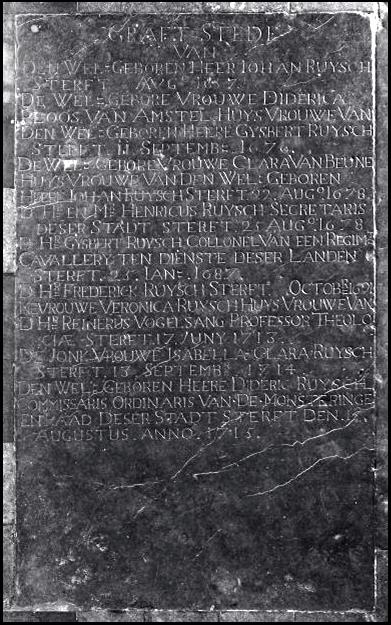 GRAFT STEDE
VAN
DEN WEL=GEBOREN HEER IOHAN RUYSCH
STERFT AUG
DE WEL=GEBORE VROUWE DIDERICA
VAN AMSTEL HUYSVROUWE VAN
DEN WEL=GEBOREN HEERE GYSBERT RUYSCH
STERFT. 11 SEPTEMB: 1676.
DE WEL=GEBORE VROUWE CLARA VAN BEUNE
HUYSVROUWE VAN DEN WEL=GEBOREN
IOHAN RUYSCH STERFT 22. AUGO. 1678.
D HR EN MR HENRICUS RUYSCH SECRETARIS
DESER STADT STERFT 25 AUGO. 1678.
D HR GYSBERT RUYSCH COLLONEL VAN EEN REGIMT
CAVALLERY TEN DIENSTE DESER LANDEN
STERFT. 23. IAN=. 1687.
D HR FREDERICK RUYSCH STERFT OCTOB
VROUWE VERONICA RUYSCH HUYSVROUWE VAN
D HR REINERUS VOGELSANG PROFESSOR THEOLO
GIÆ STERFT 17. JUNY 1713.
DE JONK VROUWE ISABELLA CLARA RUYSCH
STERFT. 13. SEPTEMBR. 1714.
DEN WEL=GEBOREN HEERE DIDERIC RUYSCH
COMMISSARIS ORDINARIS VAN DE MONSTERINGE
EN RAAD DESER STADT STERFT DEN
AUGUSTUS. ANNO. 1715.